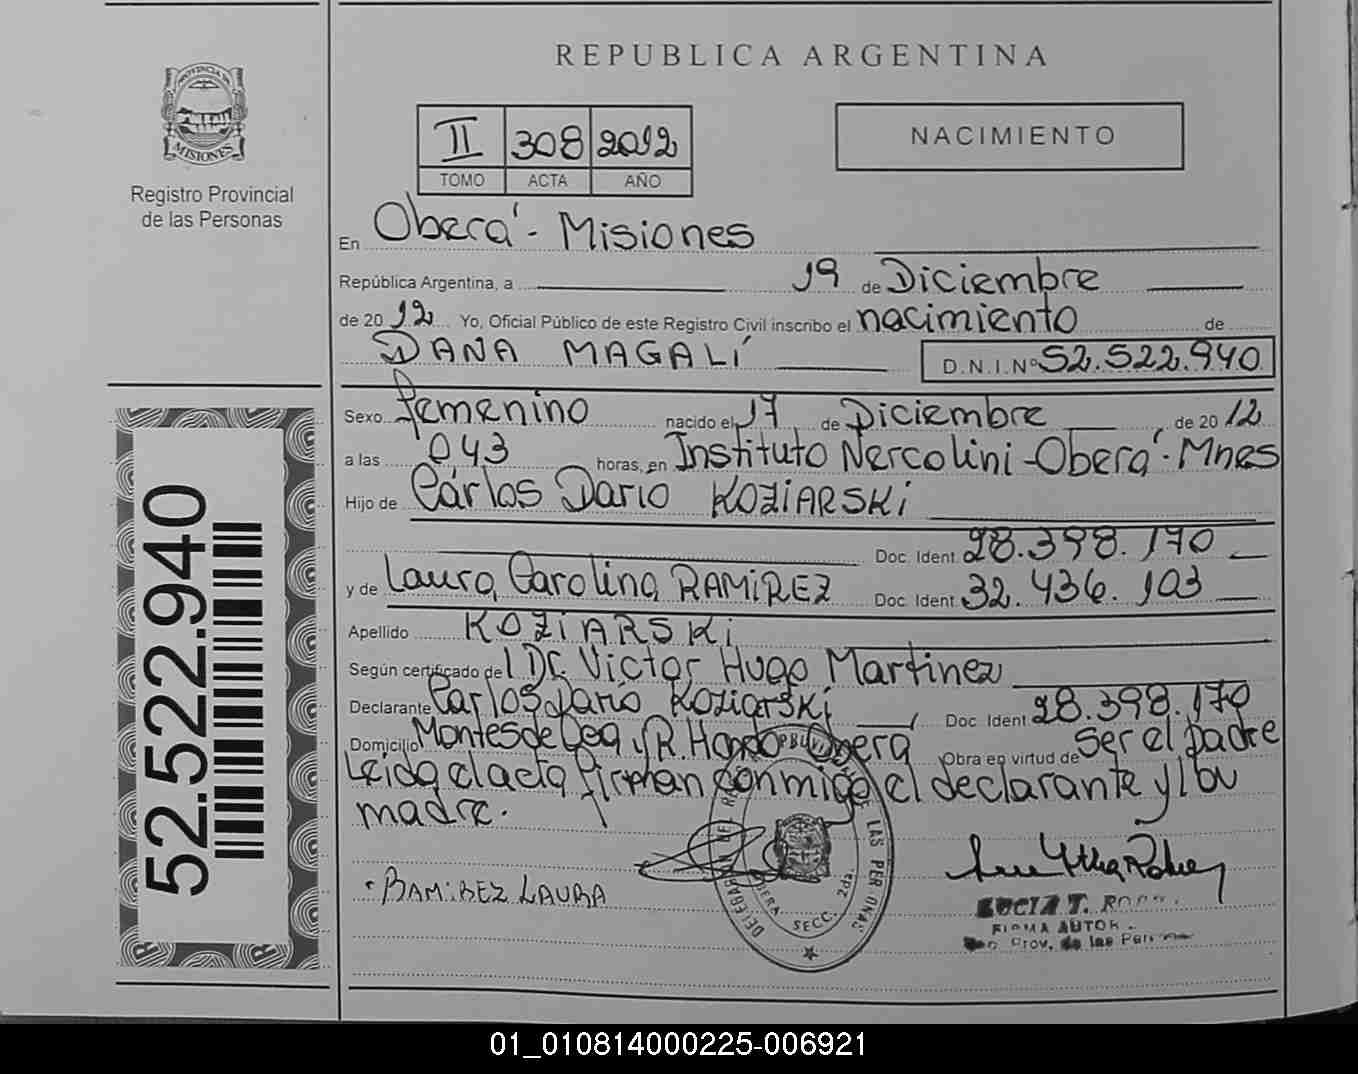 REPUBLICA ARGENTINA
PROVINCIA DE
MISIONES
Registro Provincial
de las Personas
II 308 2012
TOMO ACTA AÑO
NACIMIENTO
En Oberá - Misiones
República Argentina, a 19 de Diciembre
de 2012 Yo, Oficial Público de este Registro Civil inscribo el nacimiento de
DANA MAGALÍ D.N.I.Nº 52.522.940
Sexo femenino nacido el 17 de Diciembre de 2012
a las 043 horas, en Instituto Nercolini - Oberá - Mnes
Hijo de Cárlos Darío KOZiARSKi
Doc. Ident. 28.398.170
y de Laura Carolina RAMiREZ Doc. Ident. 32.436.103
Apellido KOZiARSKi
Según certificado del Dr. Victor Hugo Martinez
Declarante Carlos Darío Koziarski Doc. Ident 28.398.170
Domicilio Montes de Oca y R. Hondo Oberá Obra en virtud de ser el padre
Leida el acta firman conmigo el declarante y la
madre.
RAMiREZ LAURA
DELEGACION DE LAS PERSONAS
OBERA SECC. 2da.
LUCIA T.
FIRMA AUTOR.
Prov. de las Per
52.522.940
01_010814000225-006921